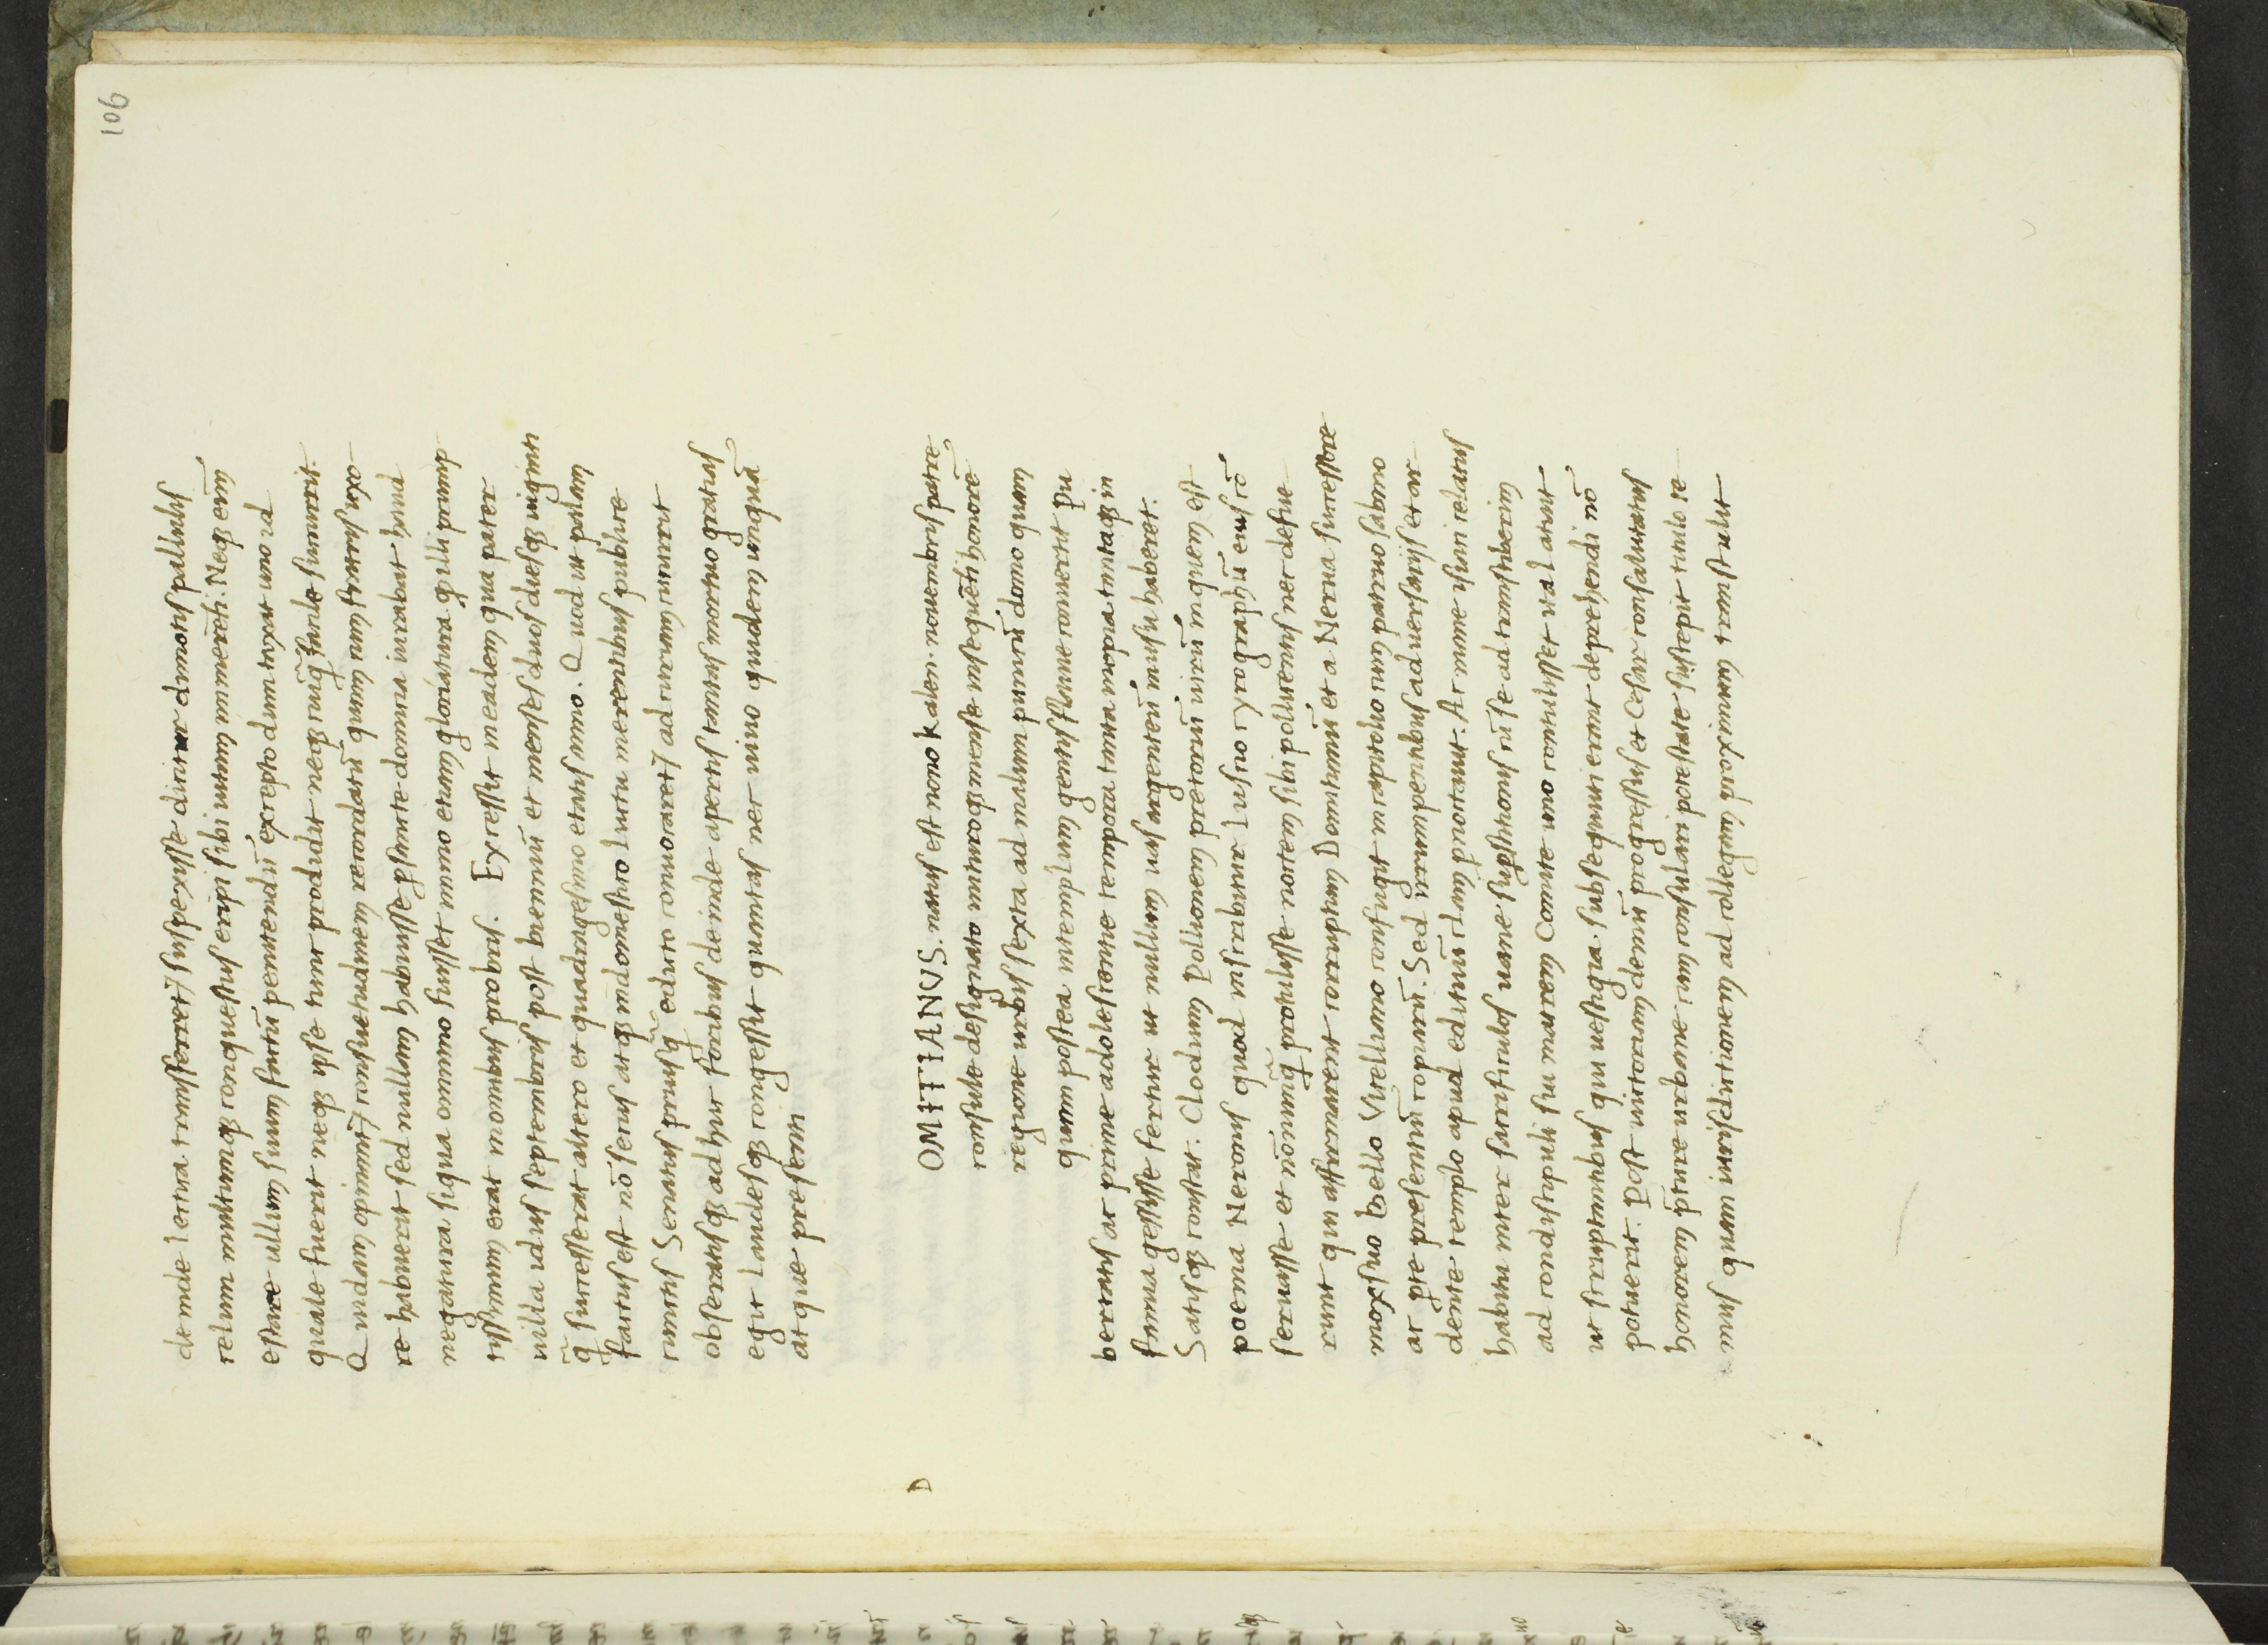 106
deinde lectica transferret᷑ suspexisse dicitur dimotis pallulis
celum multumqꝫ conquestus eripi sibi uitam inmerēti. Neqꝫ eni᷑
estare ullum suum factū penitendū excepto dum taxat uno id
quale fuerit neqꝫ ipse tunc prodidit neqꝫ cuiq̄ facile succurrit.
Quidam opinant᷑ consuetudinem recordatū quam cum fratris uxo
re habuerit sed nullam habuisse ꝑsancte domicia iurabat haud
negatura siqua omnino fuisset immo etiam gloriatura ꝙ illi promp
tissimum erat in omnibus probris. Excessit in eadem qua pater
uilla idus septembris post bienniū et menses duos diesqꝫ uiginti
q̄ successerat altero et quadragesimo etatis anno. Quod ut palam
factus est nō secus atqꝫ in domestico luctu merentibus publice
cunctis Senatus priusq̄ edicto conuocaret᷑ ad curiam cucurrit
obseratisqꝫ adhuc foribus deinde apertis tantas mortuo gratias
egit laudesqꝫ congessit quantas nec uiuo quidem unquā
atque presenti
D
OMITIANVS. natus est nono kalen. nouembris patre
consule designato inituroqꝫ mense insequēti honorē
regione urbis sexta ad malum punicū domo quam
quam postea in templum gentis flauie conuertit pu
bertatis ac prime adolescentie tempora tanta inopia tantaqꝫ in
famia gessisse fertur ut nullum uas argenteū in usu haberet.
Satisqꝫ constat. Clodium pollionem pretoriū uirū in quem est
poema Neronis quod inscribitur luscio cyrographū eius cō
seruasse et nōnunq̄ protulisse noctem sibi pollicentis nec defue
runt qui affirmarent corruptum Domitianū et a Nerua successore
mox suo bello Vitelliano confugit in capitolio cum patruo sabino
ac ꝑte presentiū copiarū. Sed irrumpentibus aduersarijs et ar
dente templo apud edituū clam pnoctauit. Ac mane isiaci celatus
habitu inter sacrificulos uane suꝑstitionis cū se ad transtiberim
ad condiscipuli sui matrem Comite uno contulisset ita latuit
ut scruptantibus qui uestigia. subsequuti erant deprehendi nō
potuerit. post uictoriam demū progressus et Cesar consalutatus
honorem p̄ture urbane cum consulari potestate suscepit titulo te
nius quam iurisdictionem ad collegam proximum transtulit